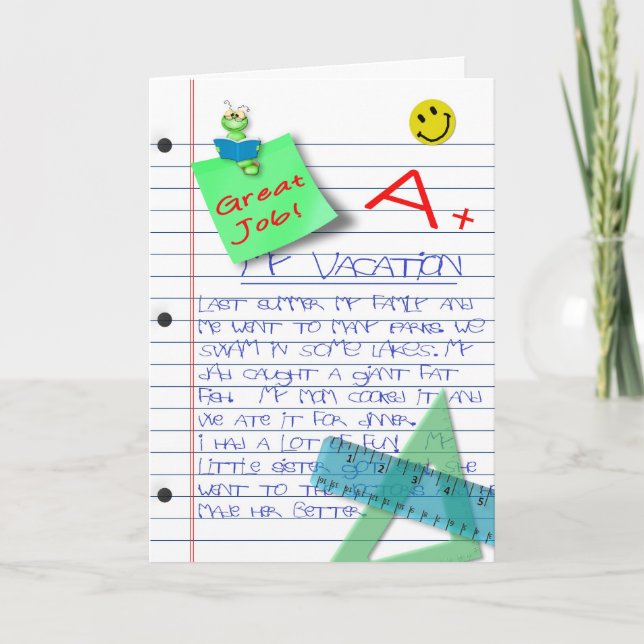 Great
Job!
A+
MY VACATION
LAST SUMMER MY FAMILY AND
ME WENT TO MANY PARKS. WE
SWAM IN SOME LAKES. MY
DAD CAUGHT A GIANT FAT
FISH. MY MOM COOKED IT AND
WE ATE IT FOR DINNER.
I HAD A LOT OF FUN! MY
LITTLE SISTER GOT SHE
WENT TO THE DOCTORS
MADE HER BETTER.
1 2 3 4 5